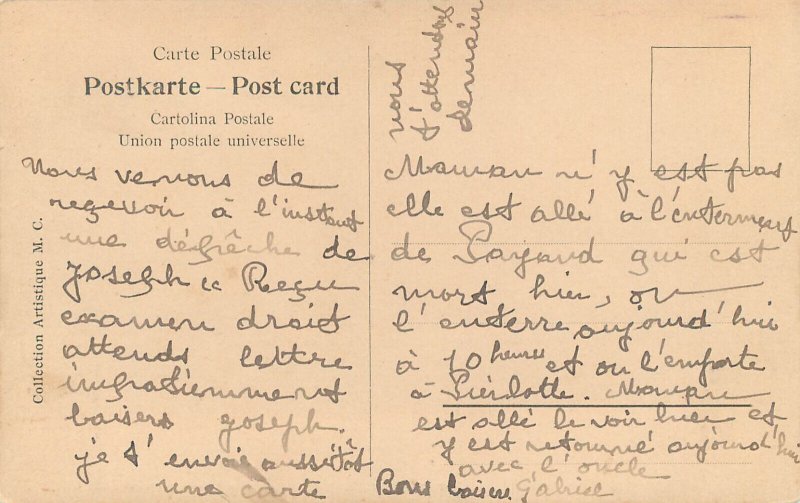 Carte Postale
Postkarte — Post card
Cartolina Postale
Union postale universelle
Collection Artistique M. C.
Nous venons de
reçevoir à l'instant
une dépêche de
Joseph « Reçu
examen droit
attends lettre
impatiemment
baisers Joseph.
je t'envoi aussitôt
une carte
Maman n'y est pas
elle est allé à l'enterment
de Payard qui est
mort hier, on
l'enterre aujourd'hui
à 10 heures et on l'emporte
à Pièrlatte. Maman
est allé le voir hier et
y est retourné aujourd'hui
avec l'oncle
Bons baisers Gabriel
nous
t'attendons
demain